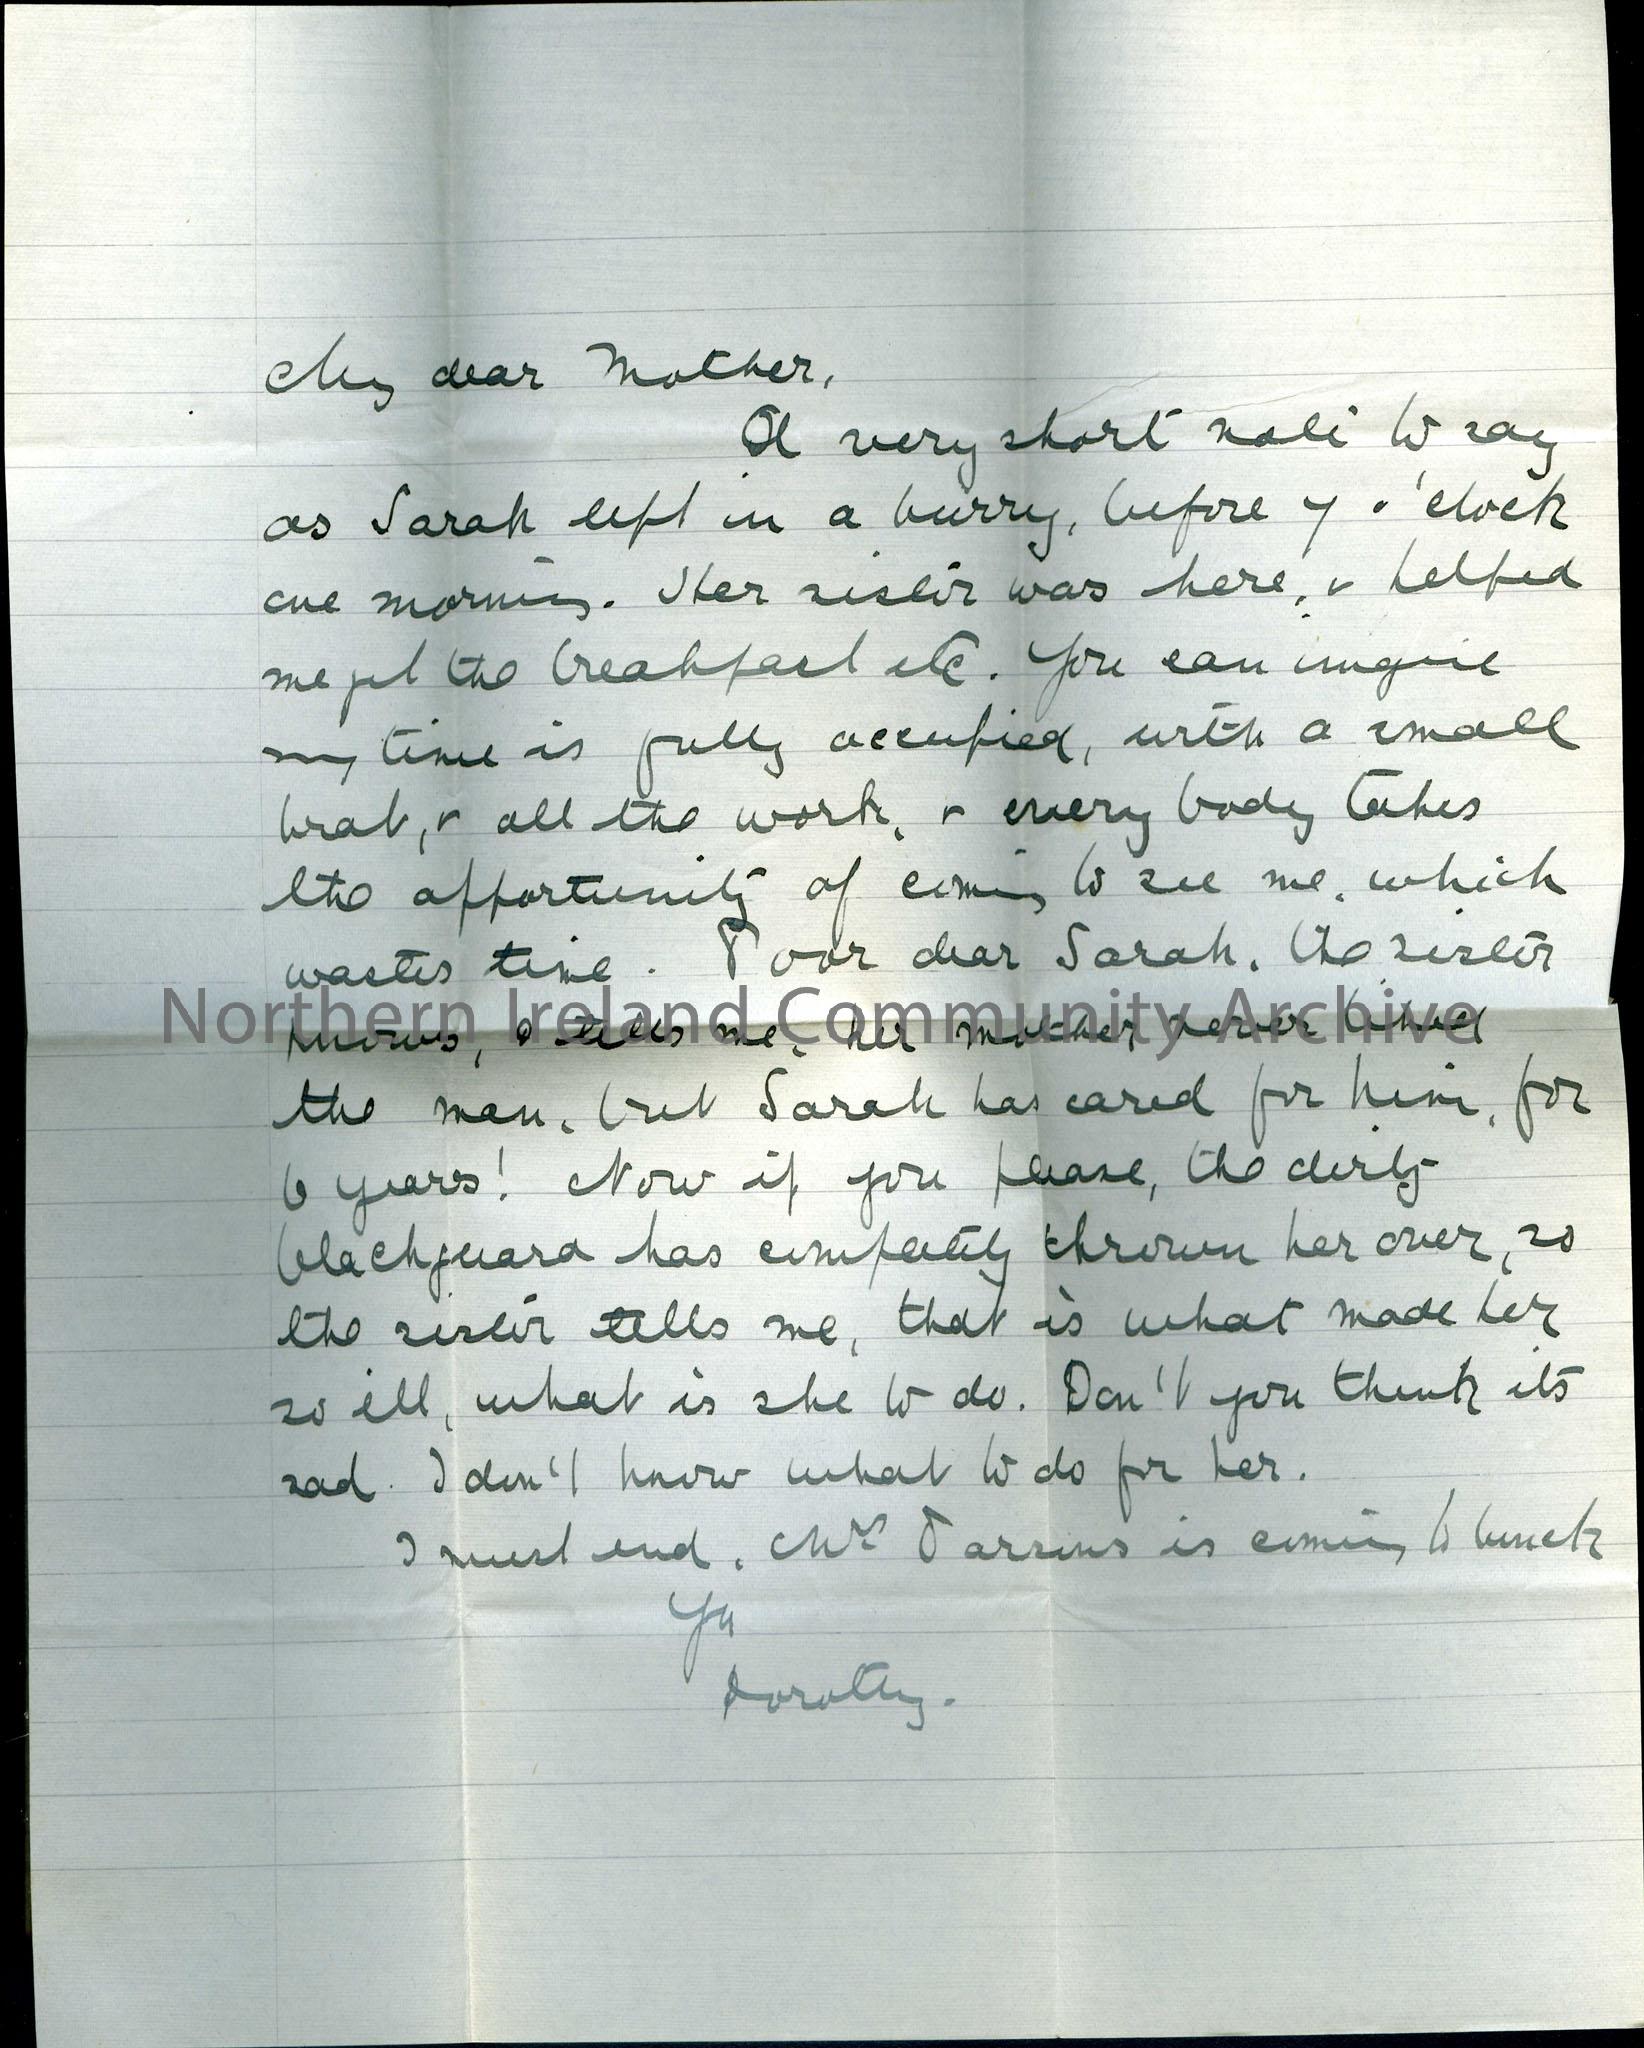 My dear Mother,
A very short note to say
as Sarah left in a hurry, before 7 o'clock
one morning. Her sister was here, & helped
me get the breakfast etc. You can imagine
my time is fully occupied, with a small
brat, & all the work, & every body takes
the opportunity of coming to see me, which
wastes time. Poor dear Sarah, the sister
knows, & tells me, her mother never liked
Northern Ireland Community Archive
the man, but Sarah has cared for him, for
6 years! Now if you please, the dirty
blackguard has completely thrown her over, so
the sister tells me, that is what made her
so ill, what is she to do. Don't you think its
sad. I don't know what to do for her.
I must end. Mrs Parsons is coming to lunch
Dorothy.